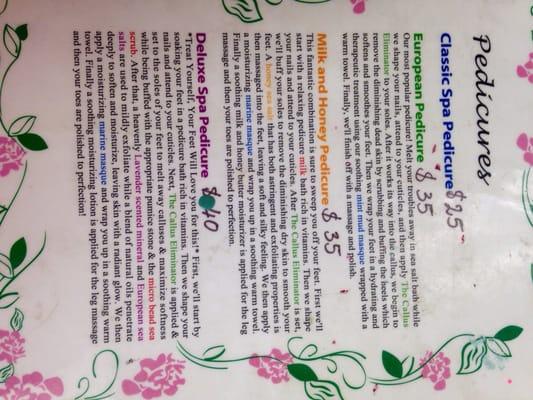 Pedicures
Classic Spa Pedicure $25
European Pedicure $35
Our most popular pedicure! Melt your troubles away in sea salt bath while
we shape your nails, attend to your cuticles, and then apply The Callus
Eliminator to your soles. After it works its way into the callus, we begin to
remove the diminishing dead skin by scrubbing and buffing the heels which
softens and smoothes your feet. Then we wrap your feet in a hydrating and
therapeutic treatment using our soothing mint mud masque wrapped with a
warm towel. Finally, we'll finish off with a massage and polish.
Milk and Honey Pedicure $35
This fantastic combination is sure to sweep you off your feet. First we'll
start with a relaxing pedicure milk bath rich in vitamins. Then we shape
your nails and attend to your cuticles. After The Callus Eliminator is set,
we'll buff your soles to remove the diminishing dry skin to smooth your
feet. A honey sea salt that has both astringent and exfoliating properties is
then massaged into the feet, leaving a soft and silky feeling. We then apply
a moisturizing marine masque and wrap you up in a soothing warm towel.
Finally a soothing milk and honey butter moisturizer is applied for the leg
massage and then your toes are polished to perfection.
Deluxe Spa Pedicure $40
*Treat Yourself, Your Feet Will Love you for this!* First, we'll start by
soaking your feet in a pedicure bath rich in vitamins. Then we shape your
nails and attend to your cuticles. Next, The Callus Eliminator is applied &
set to the soles of your feet to melt away calluses & maximize softness
while being buffed with the appropriate pumice stone & the micro bead sea
scrub. After that, a heavenly Lavender scented mineral and European sea
salts are used to mildly exfoliate while a blend of natural oils penetrate
deeply to soften and moisturize, leaving skin with a radiant glow. We then
apply a moisturizing marine masque and wrap you up in a soothing warm
towel. Finally a soothing moisturizing lotion is applied for the leg massage
and then your toes are polished to perfection!